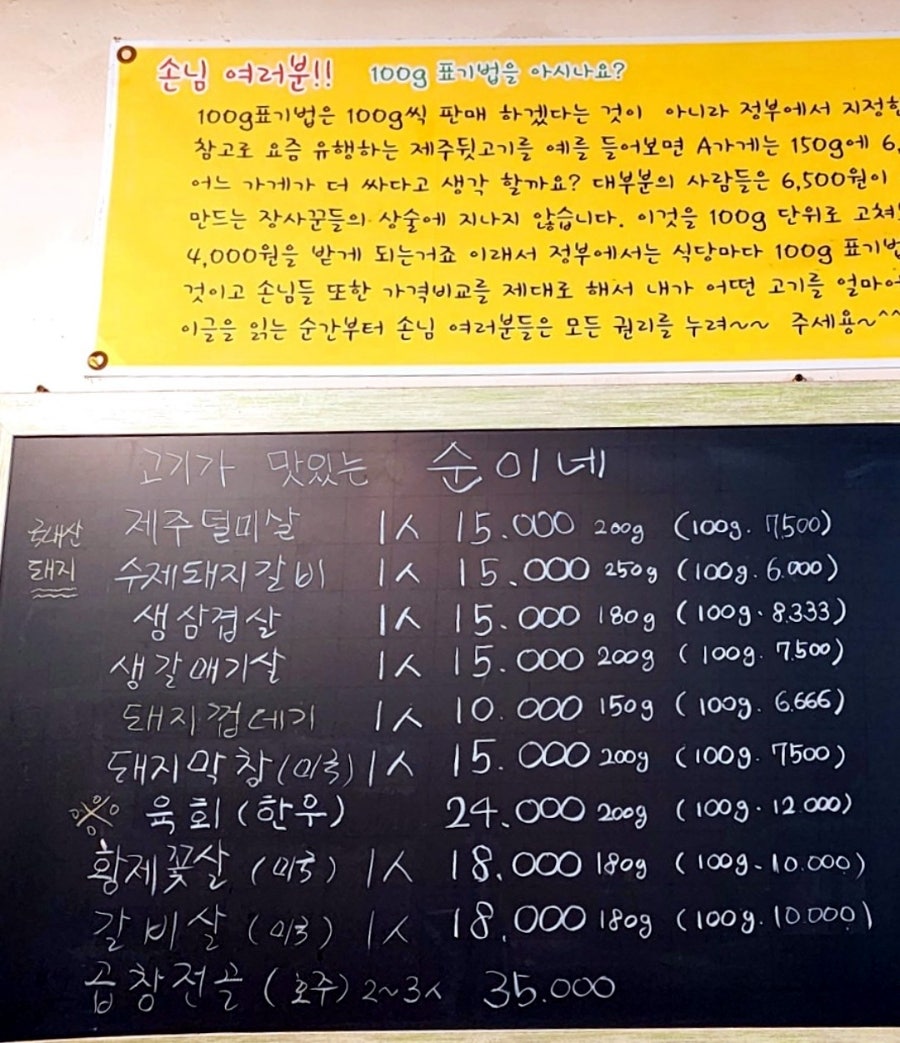 손님 여러분!! 100g 표기법을 아시나요?
100g표기법은 100g씩 판매 하겠다는 것이 아니라 정부에서 지정한
참고로 요즘 유행하는 제주뒷고기를 예를 들어보면 A가게는 150g에 6,
어느 가게가 더 싸다고 생각 할까요? 대부분의 사람들은 6,500원이
만드는 장사꾼들의 상술에 지나지 않습니다. 이것을 100g 단위로 고쳐
4,000원을 받게 되는거죠 이래서 정부에서는 식당마다 100g 표기법
것이고 손님들 또한 가격비교를 제대로 해서 내가 어떤 고기를 얼마에
이글을 읽는 순간부터 손님 여러분들은 모든 권리를 누려~~ 주세용~^^
고기가 맛있는 순이네
국내산 돼지
제주덜미살 1人 15.000 200g (100g. 7,500)
수제돼지갈비 1人 15.000 250g (100g. 6.000)
생삼겹살 1人 15.000 180g (100g. 8.333)
생갈매기살 1人 15.000 200g (100g. 7.500)
돼지껍데기 1人 10.000 150g (100g. 6.666)
돼지막창(미국) 1人 15.000 200g (100g. 7500)
※ 육회(한우) 24.000 200g (100g. 12.000)
황제꽃살 (미국) 1人 18.000 180g (100g. 10.000)
갈비살 (미국) 1人 18.000 180g (100g. 10.000)
곱창전골 (호주) 2~3人 35.000